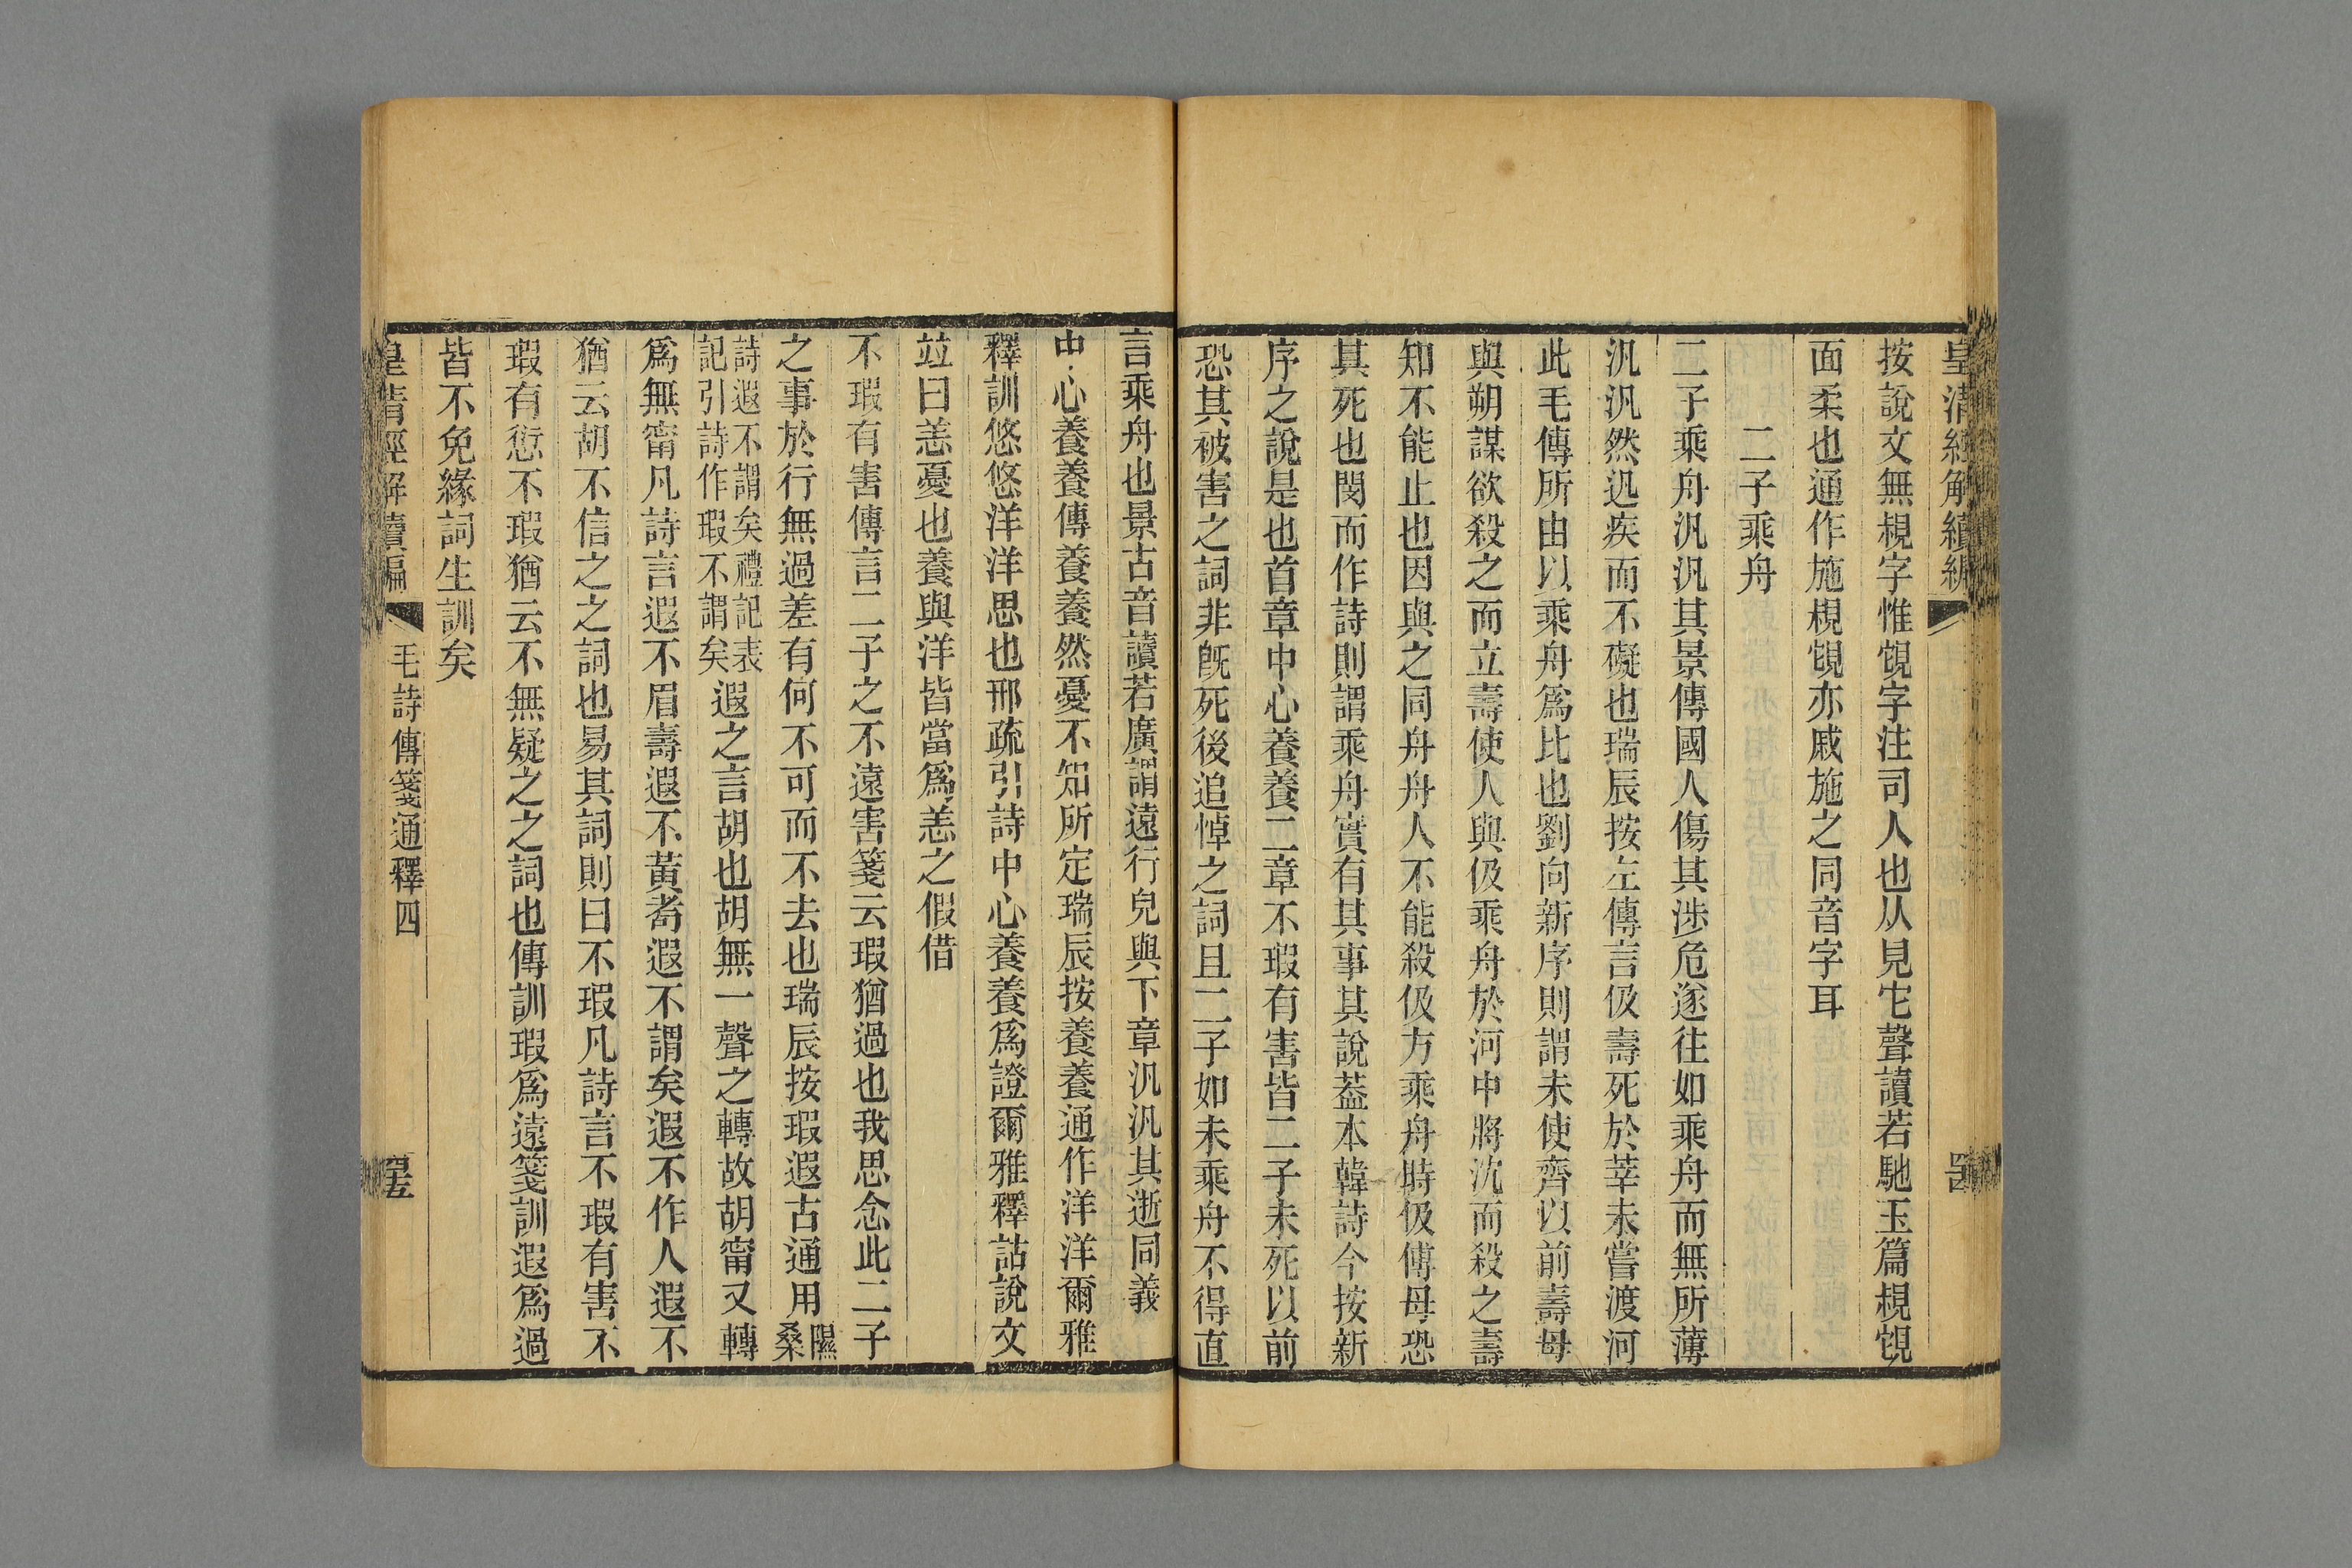 皇清經解續編
按說文無䙾字惟覘字注司人也从見它聲讀若馳玉篇䙾
面柔也通作施䙾亦戚施之同音字耳
二子乘舟
二子乘舟汎汎其景傳國人傷其涉危遂往如乘舟而無所薄
汎汎然迅疾而不礙也瑞辰按左傳言伋壽死於莘未嘗渡河
此毛傳所由以乘舟爲比也劉向新序則謂未使齊以前壽母
與朔謀欲殺之而立壽使人與伋乘舟於河中將沈而殺之壽
知不能止也因與之同舟舟人不能殺伋方乘舟時伋傅母恐
其死也閔而作詩則謂乘舟實有其事其說葢本韓詩今按新
序之說是也首章中心養養二章不瑕有害皆二子未死以前
恐其被害之詞非旣死後追悼之詞且二子如未乘舟不得直
言乘舟也景古音讀若廣謂遠行皃與下章汎汎其逝同義
中心養養傳養養然憂不知所定瑞辰按養養通作洋洋爾雅
釋訓悠悠洋洋思也邢疏引詩中心養養爲證爾雅釋詁說文
竝曰恙憂也養與洋皆當爲恙之假借
不瑕有害傳言二子之不遠害箋云瑕猶過也我思念此二子
之事於行無過差有何不可而不去也瑞辰按瑕遐古通用隰桑
詩遐不謂矣禮記表記引詩作瑕不謂矣遐之言胡也胡無一聲之轉故胡甯又轉
爲無甯凡詩言遐不眉壽遐不黃耇遐不謂矣遐不作人遐不
猶云胡不信之之詞也易其詞則曰不瑕凡詩言不瑕有害不
瑕有愆不瑕猶云不無疑之之詞也傳訓瑕爲遠箋訓遐爲過
皆不免緣詞生訓矣
皇清經解續編
毛詩傳箋通釋四